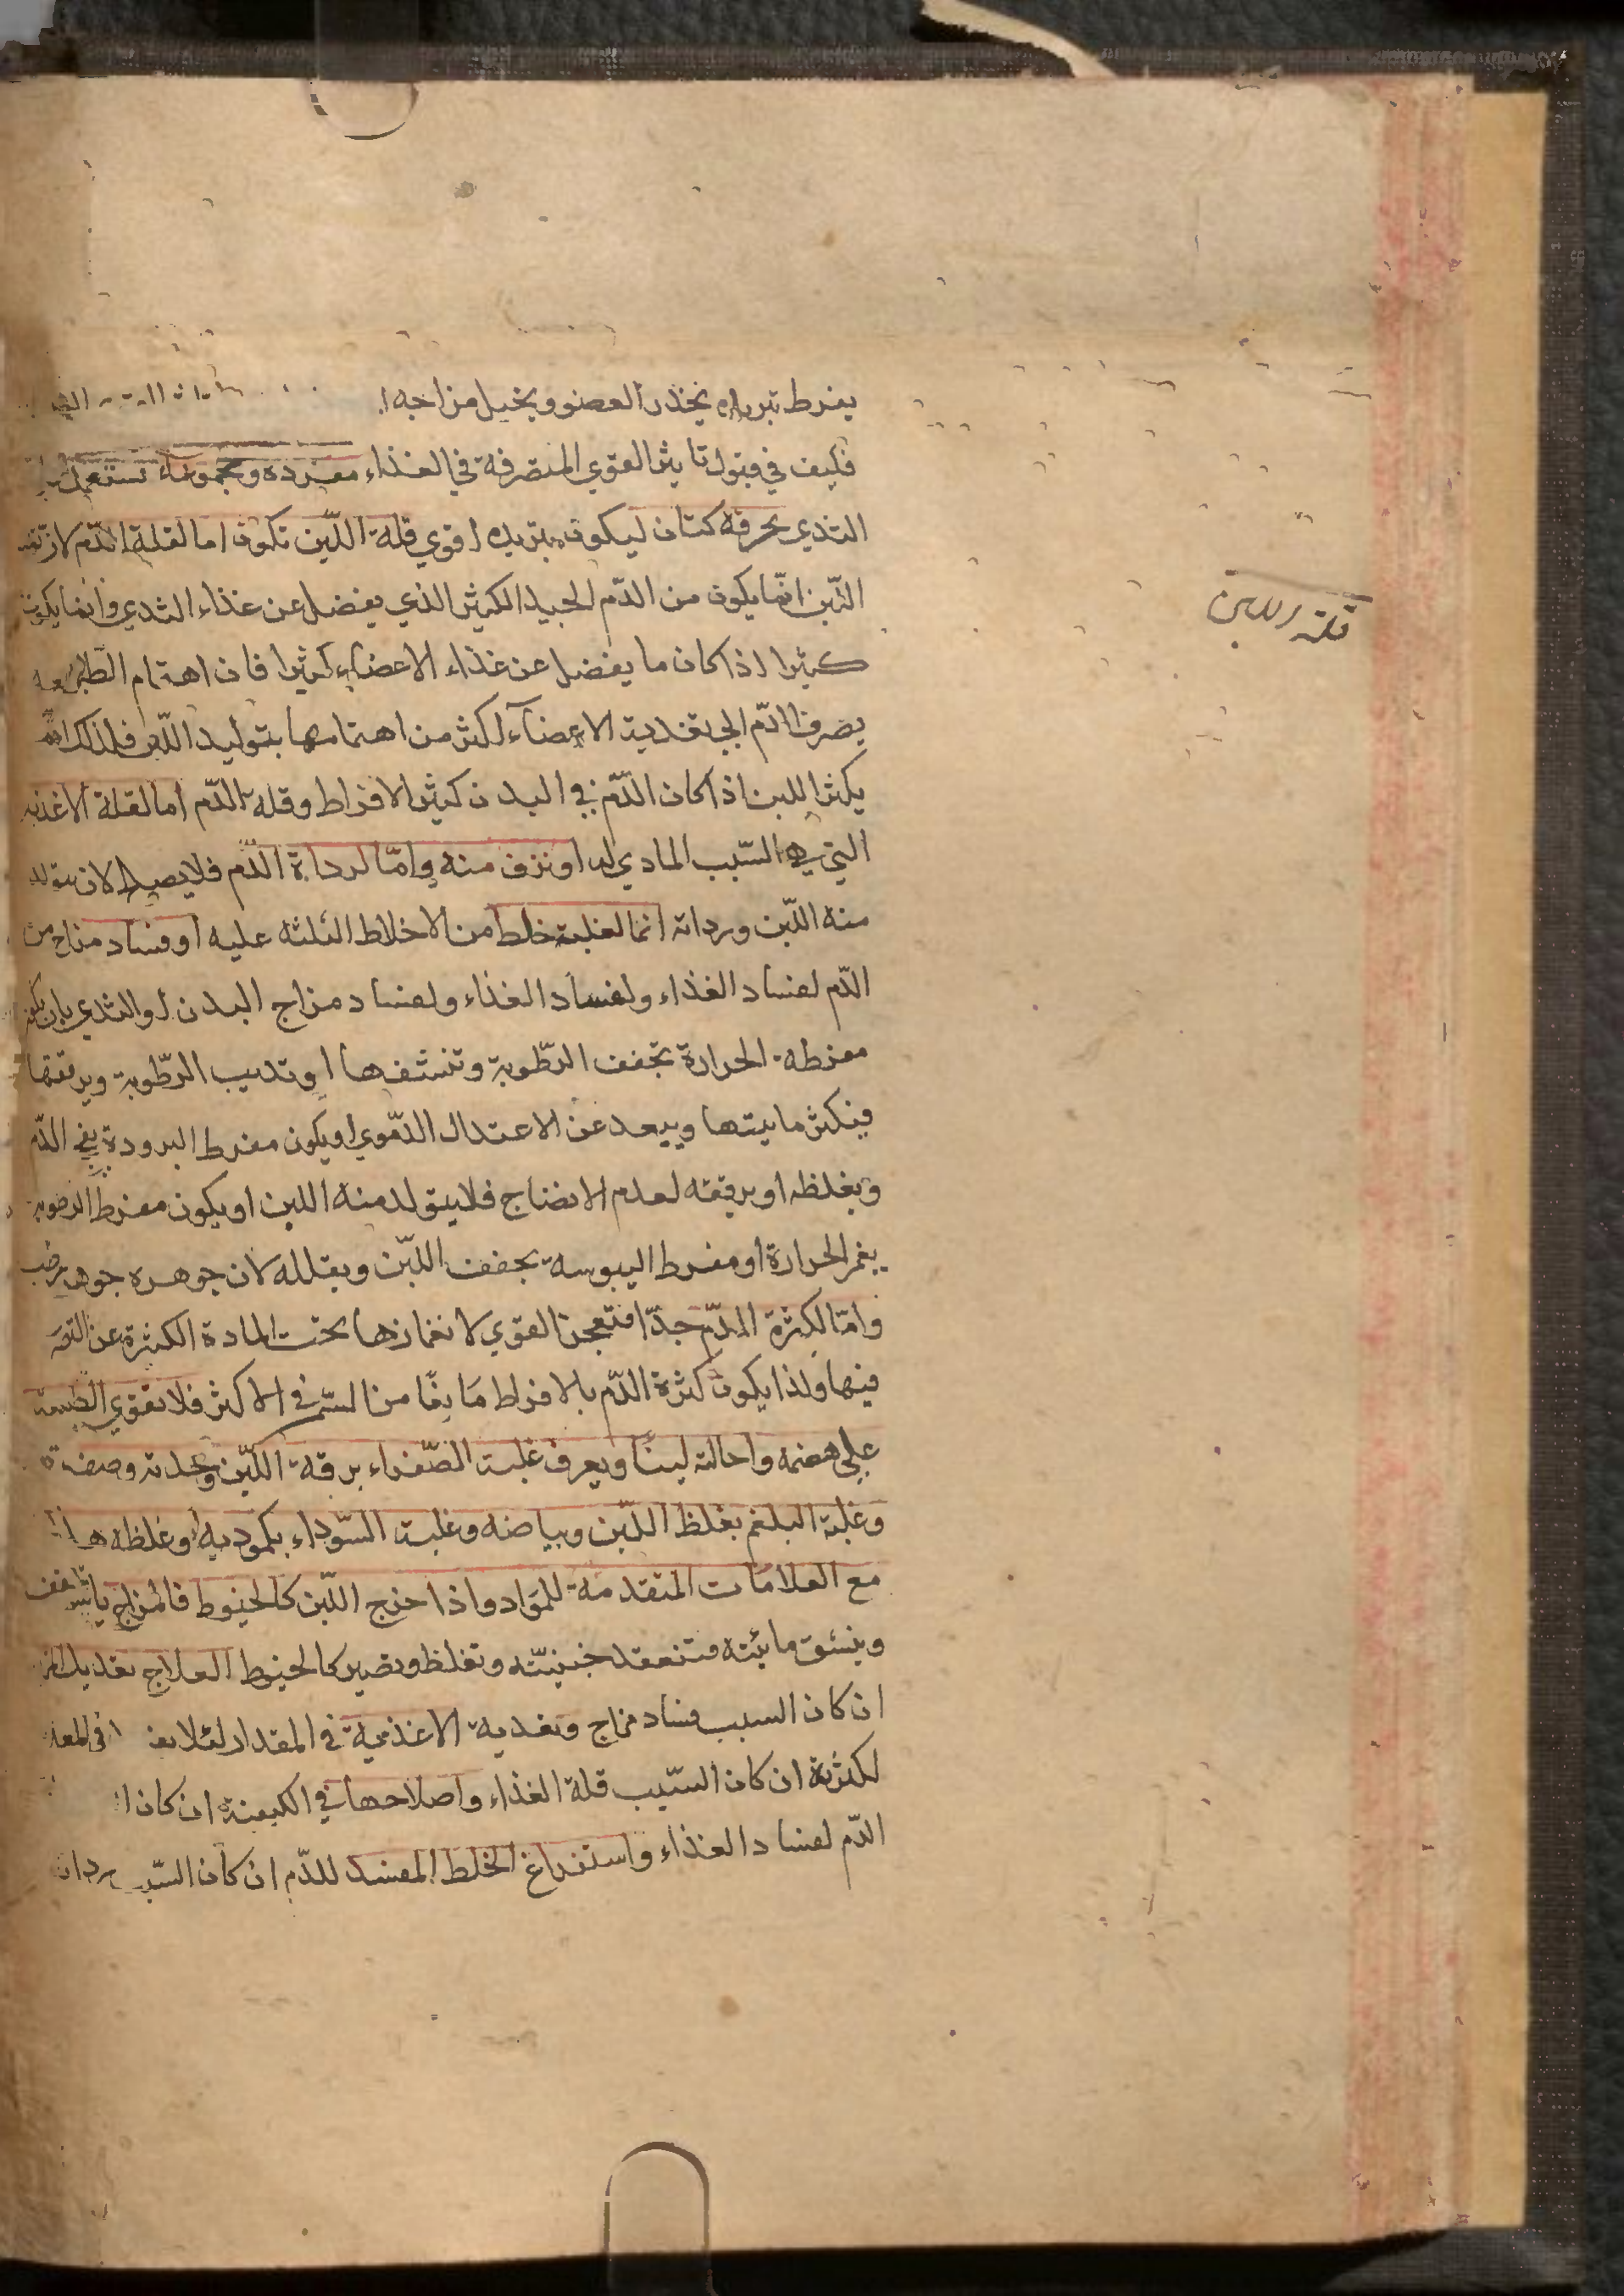 يفرط تبريده يخدر العضو ويخيل مزاجه
فكيف في قبول تاثير القوي المتصرفة في الغذاء مفردة ومجموعة تستعمل
الثدي بحرقة كتان ليكون تبريده اقوي قلة اللبن تكون اما لقلة الدم لان
اللبن انما يكون من الدم الجيد الكثير الذي يفضل عن غذاء الثدي وانما يكون
كثيرا اذا كان ما يفضل عن غذاء الاعضاء كثيرا فان اهتمام الطبيعه
يصرف الدم الي تغدية الاعضآء اكثر من اهتمامها بتوليد اللبن فلذلك انما
يكثر اللبن اذا كان الدم في البدن كثير الافراط وقلة الدم اما لقلة الاغذيه
التي هي السبب المادي له او نزف منه واما لرداءة الدم فلا يصلح لان يتولد
منه اللبن ورداته انما لغلبة خلط من الاخلاط الثلثه عليه او فساد مزاج من
الدم لفساد الغذاء ولفساد الغذاء ولفساد مزاج البدن او الثدي بان يكون
مفرطه الحرارة تجفف الرطوبة وتنشفها او تديب الرطوبة ويرققها
فيكثر مايتها ويبعد عن الاعتدال الدموي او يكون مفرط البرودة يفج الدم
ويغلظه او يرققه لعدم الانضاج فلا يتولد منه اللبن او يكون مفرط الرطوبه
يغمر الحرارة او مفرط اليبوسة يجفف اللبن ويقلله لان جوهره جوهر رطب
واما لكثرة الدم جدا فتعجز القوي لانغمارها تحت المادة الكثيرة عن التصرف
فيها ولذا يكون كثرة الدم بالافراط مانعا من السمن في الاكثر فلا تقوي الطبيعة
علي هضمه واحالته لبنا ويعرف غلبة الصفراء برقة اللبن وحدته وصفرته
وغلبة البلغم بغلظ اللبن وبياضه وغلبت السوداء بكموديه وغلظه هذا
مع العلامات المتقدمة للمواد واذا خرج اللبن كالخيوط فالمزاج يابس
وينشق مايئته فتنعقد جبنيته وتغلظ ويصير كالخيوط العلاج تعديل المزاج
ان كان السبب فساد مزاج وتغدية الاغذية في المقدار لئلا في المعدة
لكثرته ان كان السبب قلة الغذاء واصلاحها في الكيفية ان كان
الدم لفساد الغذاء واستفراغ الخلط المفسد للدم ان كان السبب رداة
قلة اللبن